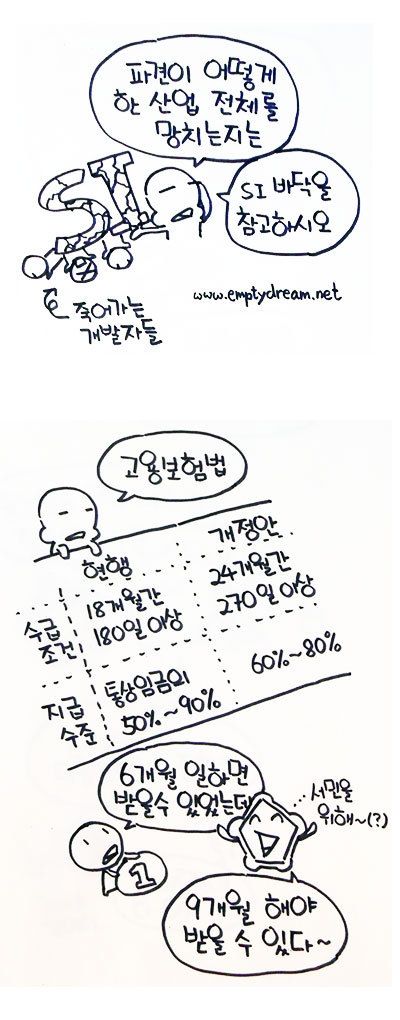 파견이 어떻게
한 산업 전체를
망치는지는
SI
SI 바닥을
참고하시오
www.emptydream.net
죽어가는
개발자들
고용보험법
현행
개정안
수급
조건
18개월간
180일 이상
24개월간
270일 이상
지급
수준
통상임금의
50%~90%
60%~80%
6개월 일하면
받을수 있었는데
서민을
위해~(?)
1
9개월 해야
받을 수 있다~